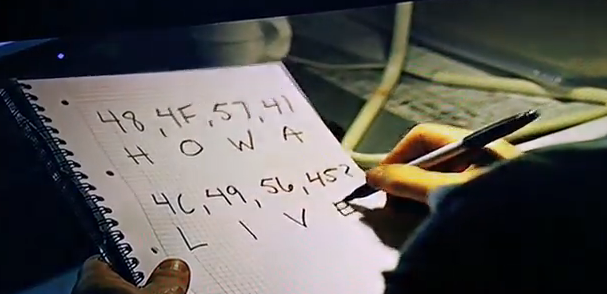 48, 4F, 57, 41
H O W A
4C, 49, 56, 45?
L I V E